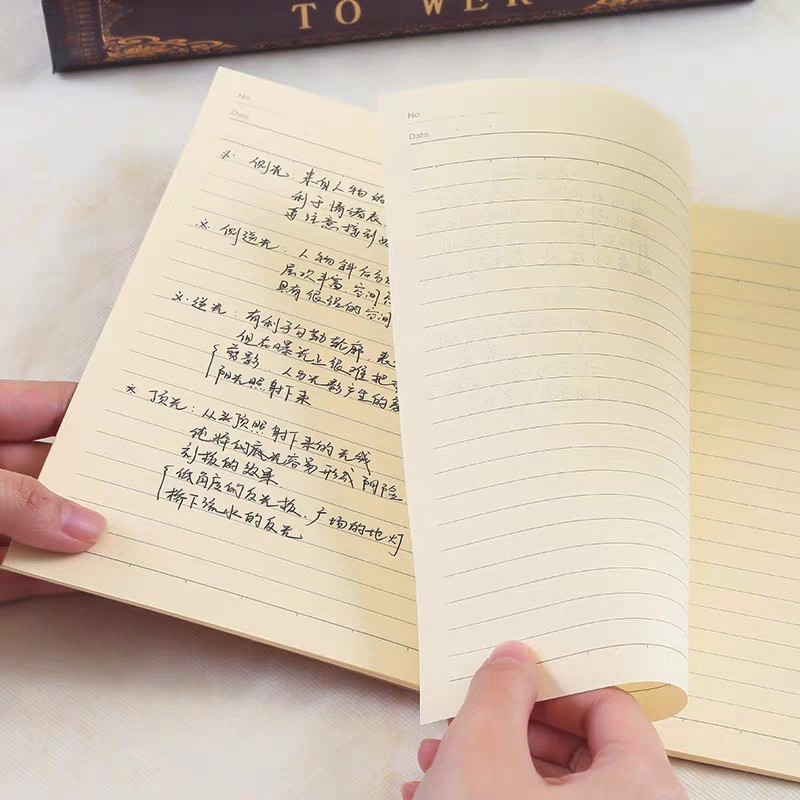 TO WER
No.
Date.
No.
Date.
※ 侧光：来自人物的
利于情绪表
要注意控制
※ 侧逆光：人物斜后
层次丰富 空间
具有很强的空间
※ 逆光：有利于勾勒轮廓，
但在曝光上很难把
剪影，人为光影产生的
阳光照射下来
※ 顶光：从头顶照射下来的光线
他将
刻板的效果
低角度的反光板，广场的地灯
桥下流水的反光